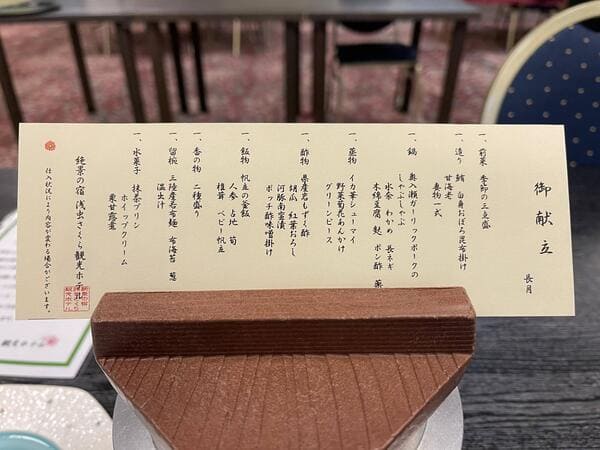 御献立
長月
一、前菜 季節の三点盛
一、造り 鮪 白身おぼろ昆布掛け
甘海老
妻物一式
一、鍋 奥入瀬ガーリックポークの
しゃぶしゃぶ
水菜 わかめ 長ネギ
木綿豆腐 麩 ポン酢 薬
一、蒸物 イカ華シューマイ
野菜菊花あんかけ
グリーンピース
一、酢物 県産岩もずく酢
胡瓜 紅葉おろし
河豚南蛮漬
ポッチ酢味噌掛け
一、飯物 帆立の釜飯
人参 占地 筍
椎茸 ベビー帆立
一、留椀 三陸産若布麺 布海苔 葱
温出汁
一、香の物 二種盛り
一、水菓子 抹茶プリン
ホイップクリーム
栗甘露煮
絶景の宿 浅虫さくら観光ホテル
仕入状況により内容が変わる場合がございます。